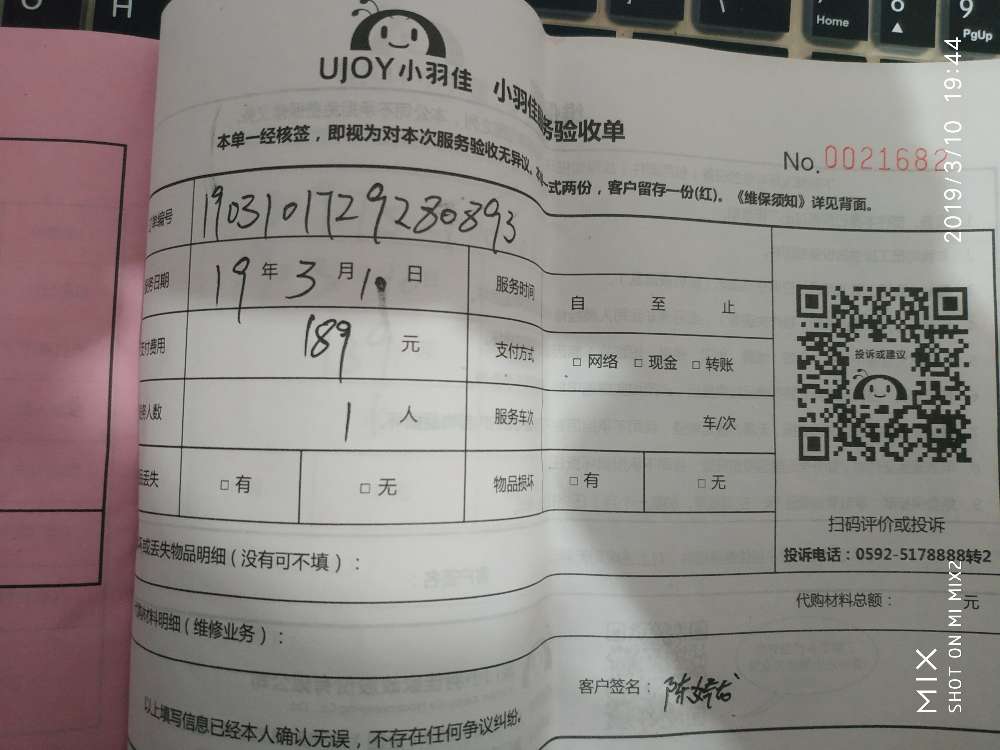 Home
8
9
PgUp
UJOY小羽佳
小羽佳服务验收单
本单一经核签，即视为对本次服务验收无异议。本单一式两份，客户留存一份(红)。《维保须知》详见背面。
No.0021682
单编号
1903101729280893
务日期
19年3月10日
服务时间
自 至 止
付费用
189元
支付方式
□ 网络 □ 现金 □ 转账
人数
1 人
服务车次
车/次
丢失
□ 有
□ 无
物品损坏
□ 有
□ 无
投诉或建议
扫码评价或投诉
投诉电话：0592-5178888转2
或丢失物品明细（没有可不填）：
材料明细（维修业务）：
代购材料总额： 元
客户签名：
以上填写信息已经本人确认无误，不存在任何争议纠纷。
2019/3/10 19:44
MIX
SHOT ON MI MIX2